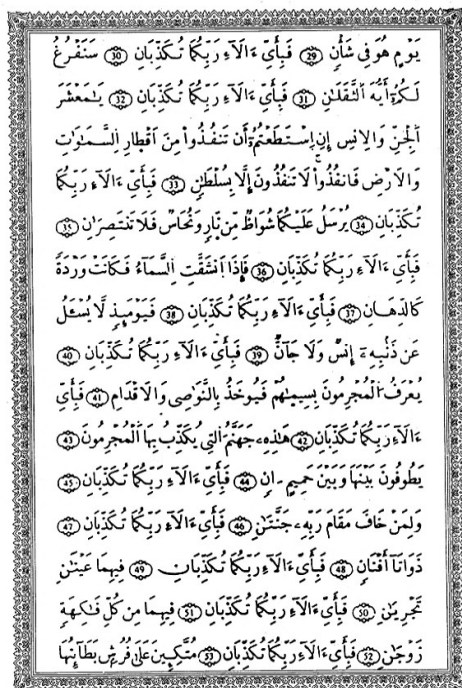 يَوْمٍ هُوَ فِي شَأْنٍ 29 فَبِأَيِّ ءَالَآءِ رَبِّكُمَا تُكَذِّبَانِ 30 سَنَفْرُغُ
لَكُمُۥٓ أَيُّهَ اَلثَّقَلَانِ 31 فَبِأَيِّ ءَالَآءِ رَبِّكُمَا تُكَذِّبَانِ 32 يَٰمَعْشَرَ
اَلْجِنِّ وَالِانسِ إِنِ اِسْتَطَعْتُمُۥٓ أَن تَنفُذُواْ مِنَ اَقْطَارِ اِلسَّمَٰوَٰتِ
وَالَارْضِ فَانفُذُواْ لَا تَنفُذُونَ إِلَّا بِسُلْطَٰنٍ 33 فَبِأَيِّ ءَالَآءِ رَبِّكُمَا
تُكَذِّبَانِ 34 يُرْسَلُ عَلَيْكُمَا شُوَاظٌ مِّن نَّارٍ وَنُحَاسٌ فَلَا تَنتَصِرَانِ 35
فَبِأَيِّ ءَالَآءِ رَبِّكُمَا تُكَذِّبَانِ 36 فَإِذَا اَنشَقَّتِ اِلسَّمَآءُ فَكَانَتْ وَرْدَةً
كَالدِّهَانِ 37 فَبِأَيِّ ءَالَآءِ رَبِّكُمَا تُكَذِّبَانِ 38 فَيَوْمَئِذٍ لَّا يُسْـَٔلُ
عَن ذَنۢبِهِۦٓ إِنسٌ وَلَا جَآنٌّ 39 فَبِأَيِّ ءَالَآءِ رَبِّكُمَا تُكَذِّبَانِ 40
يُعْرَفُ اُلْمُجْرِمُونَ بِسِيمَٰهُمْ فَيُوخَذُ بِالنَّوَٰصِي وَالَاقْدَامِ 41 فَبِأَيِّ
ءَالَآءِ رَبِّكُمَا تُكَذِّبَانِ 42 هَٰذِهِۦ جَهَنَّمُ اُلتِي يُكَذِّبُ بِهَا اَلْمُجْرِمُونَ 43
يَطُوفُونَ بَيْنَهَا وَبَيْنَ حَمِيمٍ ـ انٍ 44 فَبِأَيِّ ءَالَآءِ رَبِّكُمَا تُكَذِّبَانِ 45
وَلِمَنْ خَافَ مَقَامَ رَبِّهِۦ جَنَّتَٰنِ 46 فَبِأَيِّ ءَالَآءِ رَبِّكُمَا تُكَذِّبَانِ 47
ذَوَاتَآ أَفْنَانٍ 48 فَبِأَيِّ ءَالَآءِ رَبِّكُمَا تُكَذِّبَانِ 49 فِيهِمَا عَيْنَٰنِ
تَجْرِيَٰنِ 50 فَبِأَيِّ ءَالَآءِ رَبِّكُمَا تُكَذِّبَانِ 51 فِيهِمَا مِن كُلِّ فَٰكِهَةٍ
زَوْجَٰنِ 52 فَبِأَيِّ ءَالَآءِ رَبِّكُمَا تُكَذِّبَانِ 53 مُتَّكِـِٕينَ عَلَىٰ فُرُشٍۭ بَطَآئِنُهَا